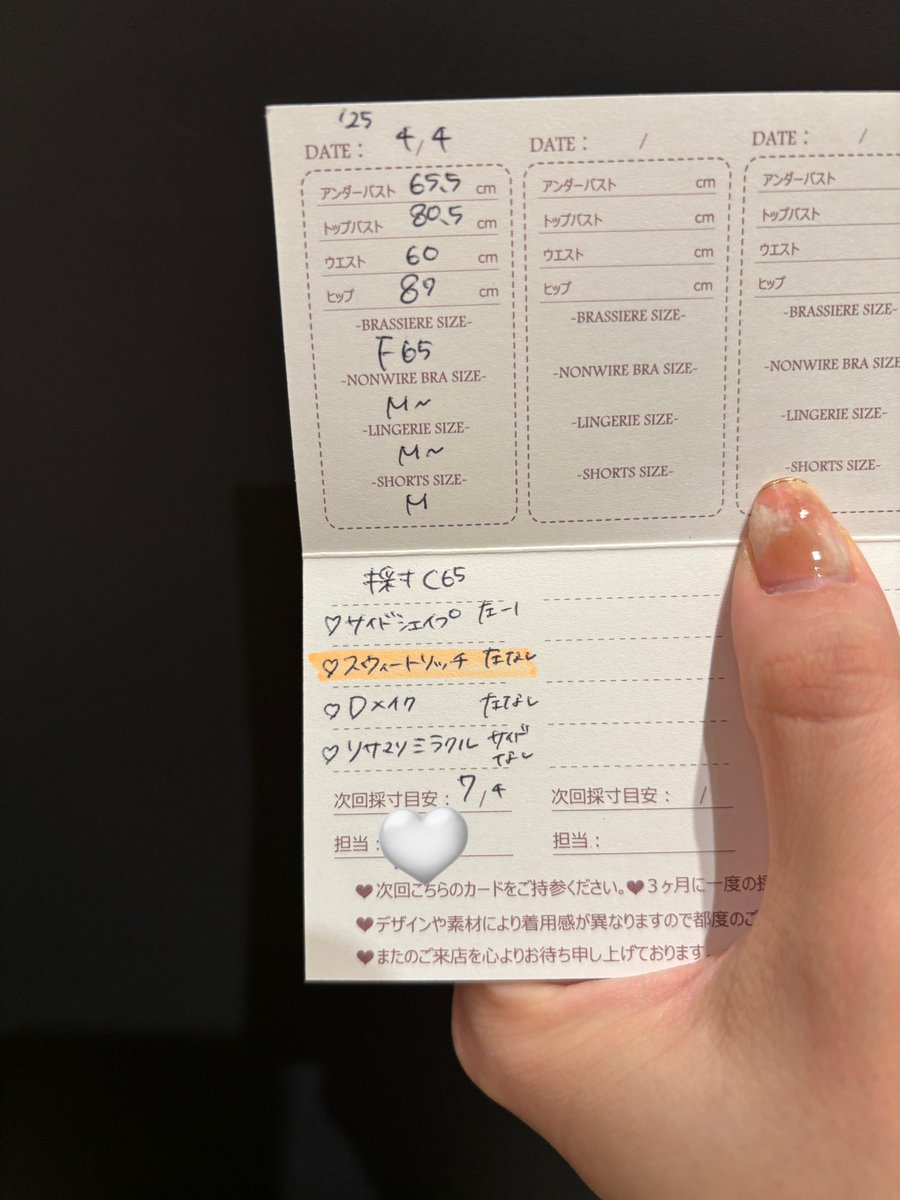 '25
DATE: 4/4
アンダーバスト 65.5 cm
トップバスト 80.5 cm
ウエスト 60 cm
ヒップ 87 cm
-BRASSIERE SIZE-
F65
-NONWIRE BRA SIZE-
M~
-LINGERIE SIZE-
M~
-SHORTS SIZE-
M
DATE: /
アンダーバスト cm
トップバスト cm
ウエスト cm
ヒップ cm
-BRASSIERE SIZE-
-NONWIRE BRA SIZE-
-LINGERIE SIZE-
-SHORTS SIZE-
DATE: /
アンダーバスト
トップバスト
ウエスト
ヒップ
-BRASSIERE SIZE-
-NONWIRE BRA SIZE
-LINGERIE SIZE-
-SHORTS SIZE-
採寸 C65
♡サイドシェイプ 左-1
♡スウィートリッチ 左なし
♡Dメイク 左なし
♡リサマリミラクル サイド
なし
次回採寸目安: 7/4
担当:
次回採寸目安: /
担当:
♥次回こちらのカードをご持参ください。♥3ヶ月に一度の採
♥デザインや素材により着用感が異なりますので都度のご
♥またのご来店を心よりお待ち申し上げております。